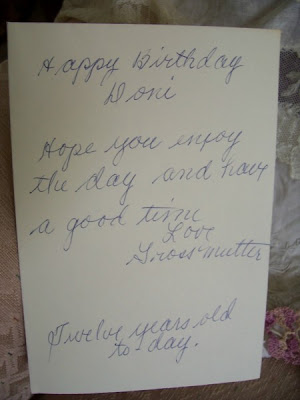 Happy Birthday
Doni
Hope you enjoy
the day and have
a good time
Love
Grossmutter
Twelve years old
to-day.